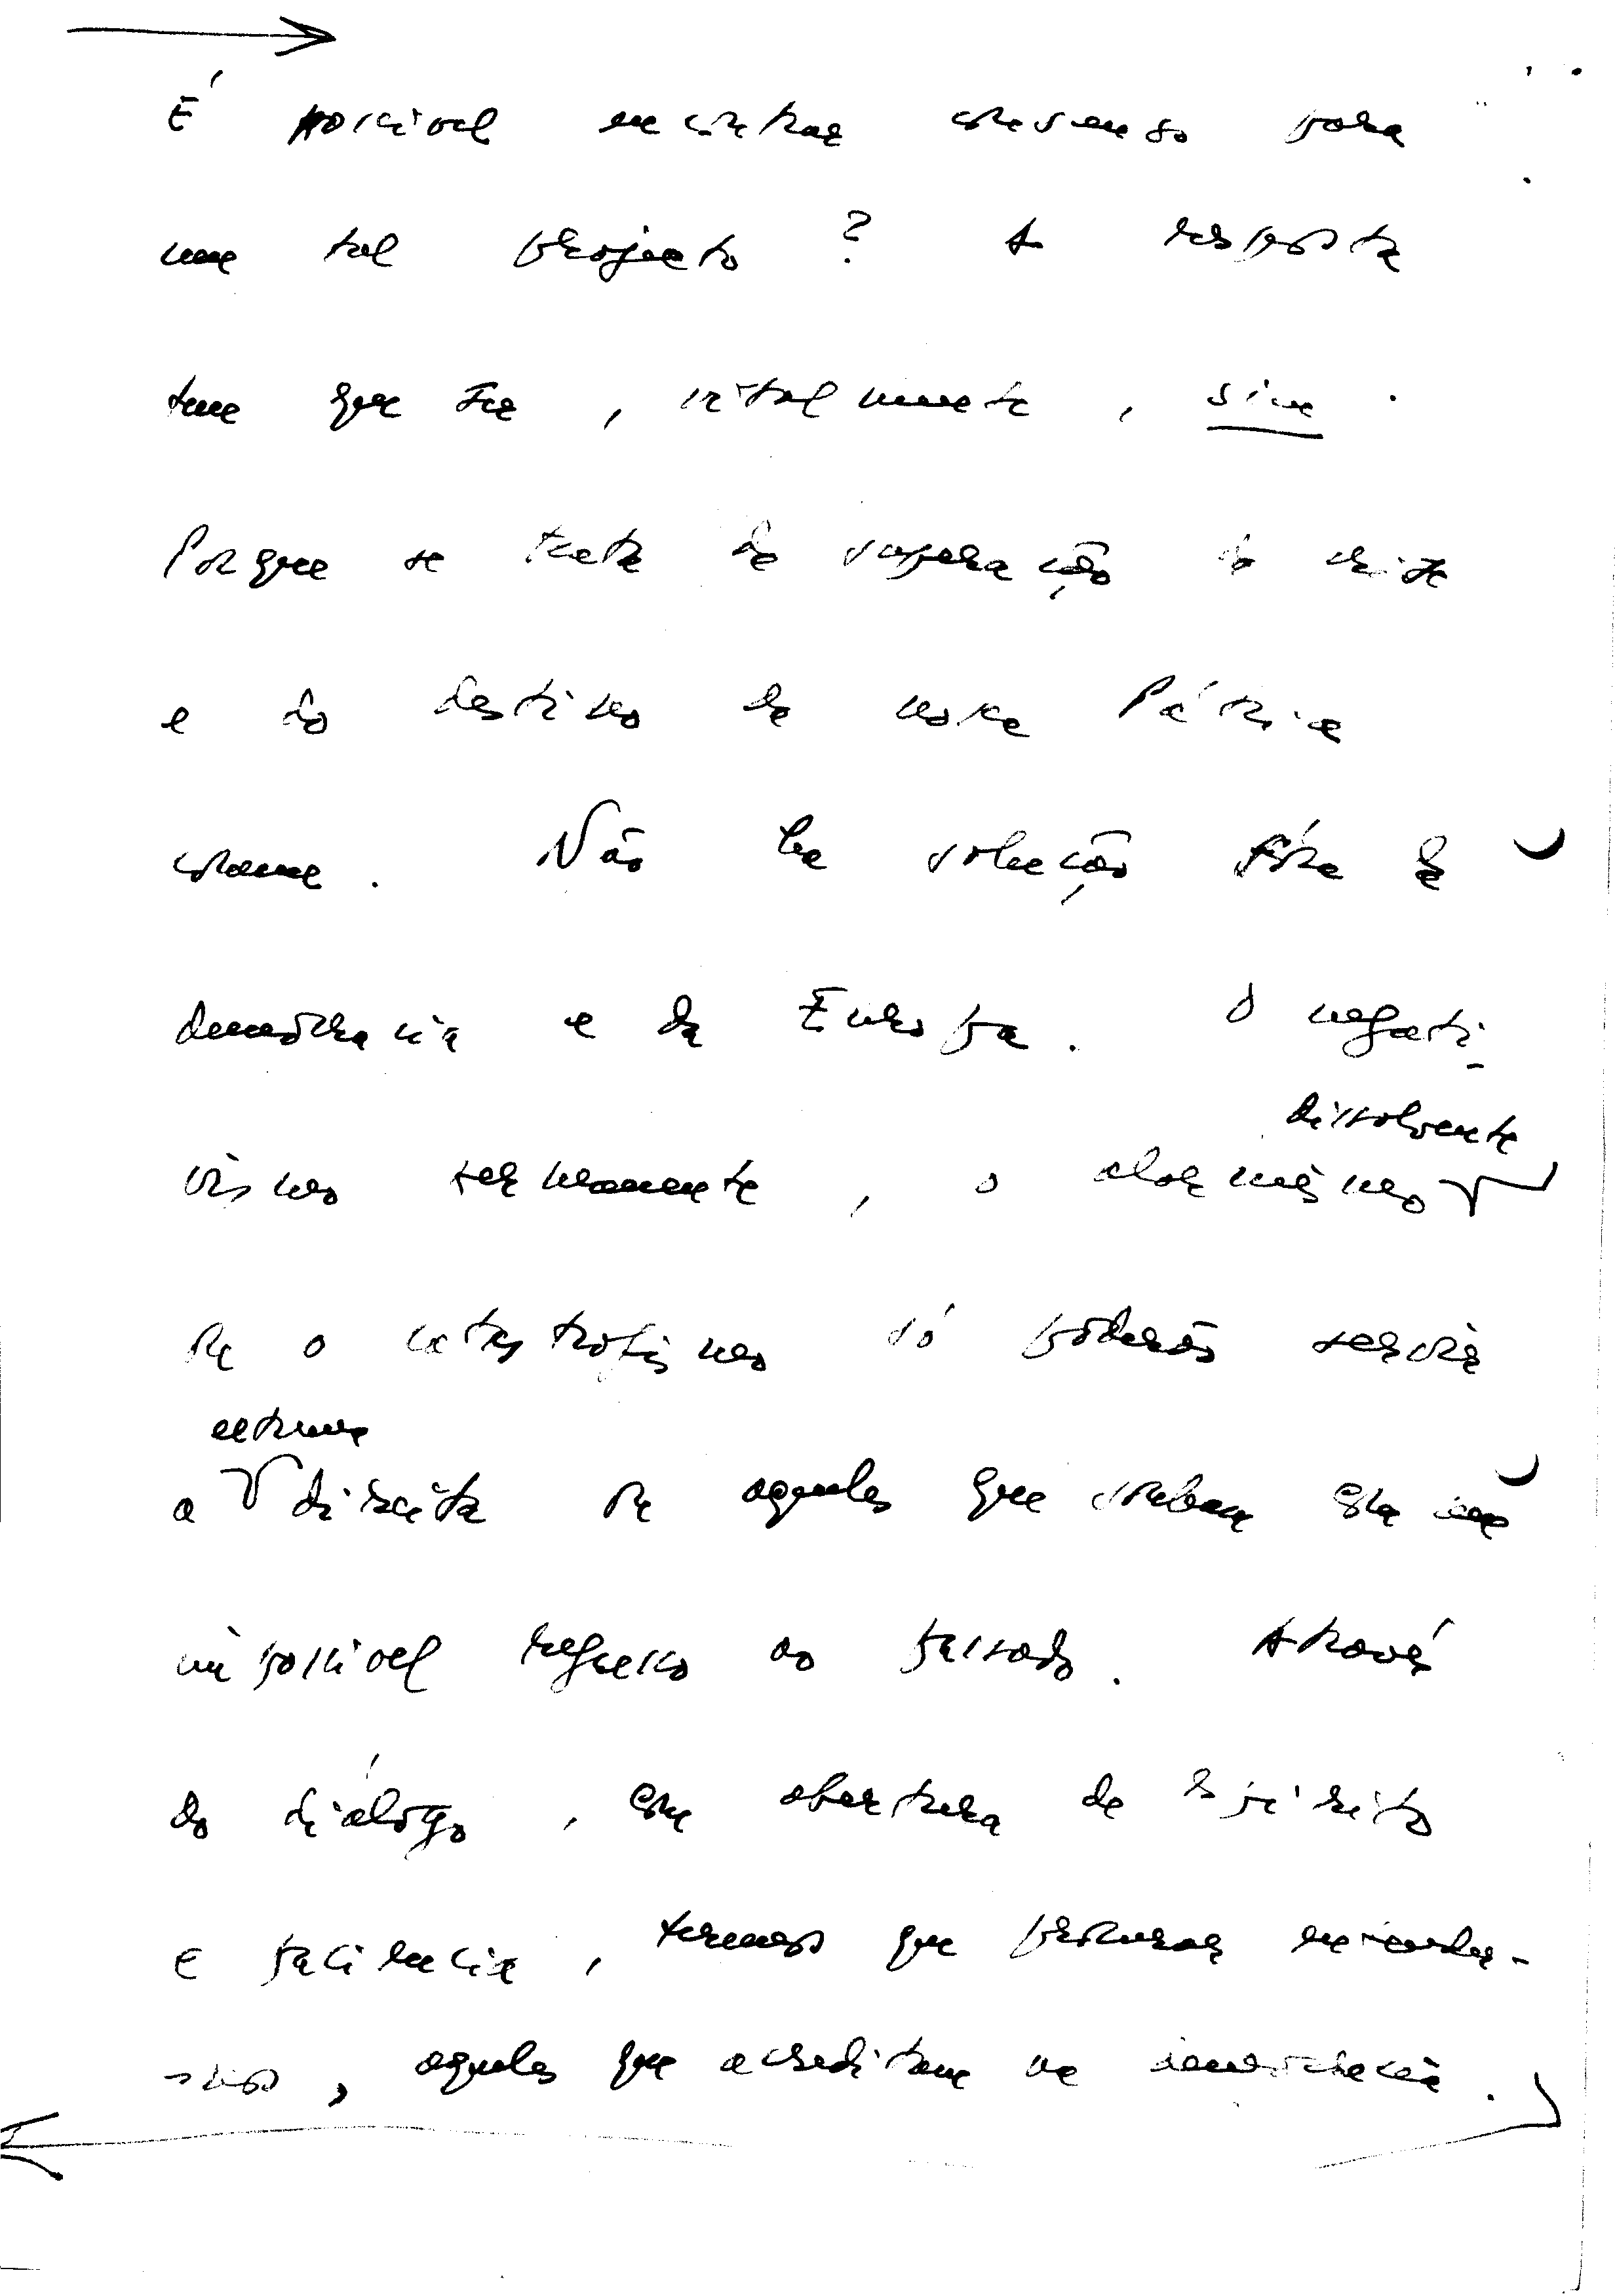 É possível encontrar consenso para
um tal projecto ? A resposta
tem que ser , vitalmente , sim .
Porque se trata da superação da crise
e do destino da nossa Pátria
comum . Não há solução fora da
democracia e da Europa . O negati-
dissolvente
vismo permanente , o alarmismo
ou o catastrofismo só poderão servir
extrema
a direita ou aqueles que sonham com um
impossível regresso ao passado . Através
do diálogo , com abertura de espírito
e paciência , teremos que procurar
, aqueles que acreditam na democracia .